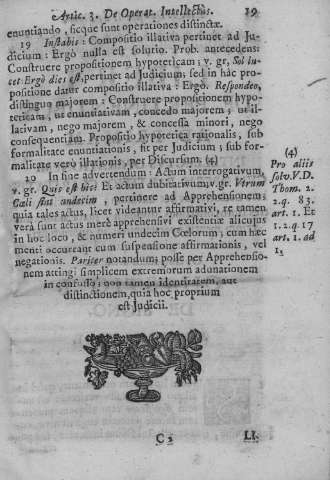 Artic. 3. De Operat. Intellectûs. 19
enuntiando, sicque sunt operationes distinctæ.
19 Instabis: Compositio illativa pertinet ad Ju-
dicium: Ergò nulla est solutio. Prob. antecedens:
Construere propositionem hypoteticam; v. gr, Sol lu-
cet Ergò dies est, pertinet ad Judicium, sed in hâc pro-
positione datur compositio illativa: Ergò. Respondeo,
distinguo majorem: Construere propositionem hypo-
teticam, ut enuntiativam, concedo majorem; ut il-
lativam, nego majorem, & concessa minori, nego
consequentiam. Propositio hypotetica rationalis, sub
formalitate enuntiationis, fit per Judicium; sub for-
malitate verò illationis, per Discursum. (4)
20 In fine advertendum: Actum interrogativum,
v. gr. Quis est hic? Et actum dubitativum; v. gr. Utrum
Cœli sint undecim, pertinere ad Apprehensionem;
quia tales actus, licet videantur affirmativi, re tamen
verâ sunt actus merè apprehensivi existentiæ alicujus
in hoc loco, & numeri undecim Cœlorum; cum hæc
menti occurrāt cum suspensione affirmationis, vel
negationis. Pariter notandum; posse per Apprehensio-
nem attingi simplicem extremorum adunationem
in confuso; non tamen identitatem, aut
distinctionem, quia hoc proprium
est Judicii.
(4)
Pro aliis
solv. V. D.
Thom. 2.
2. q. 83.
art. 1. Et
1. 2. q. 17
art. 1. ad
C 2 LI-